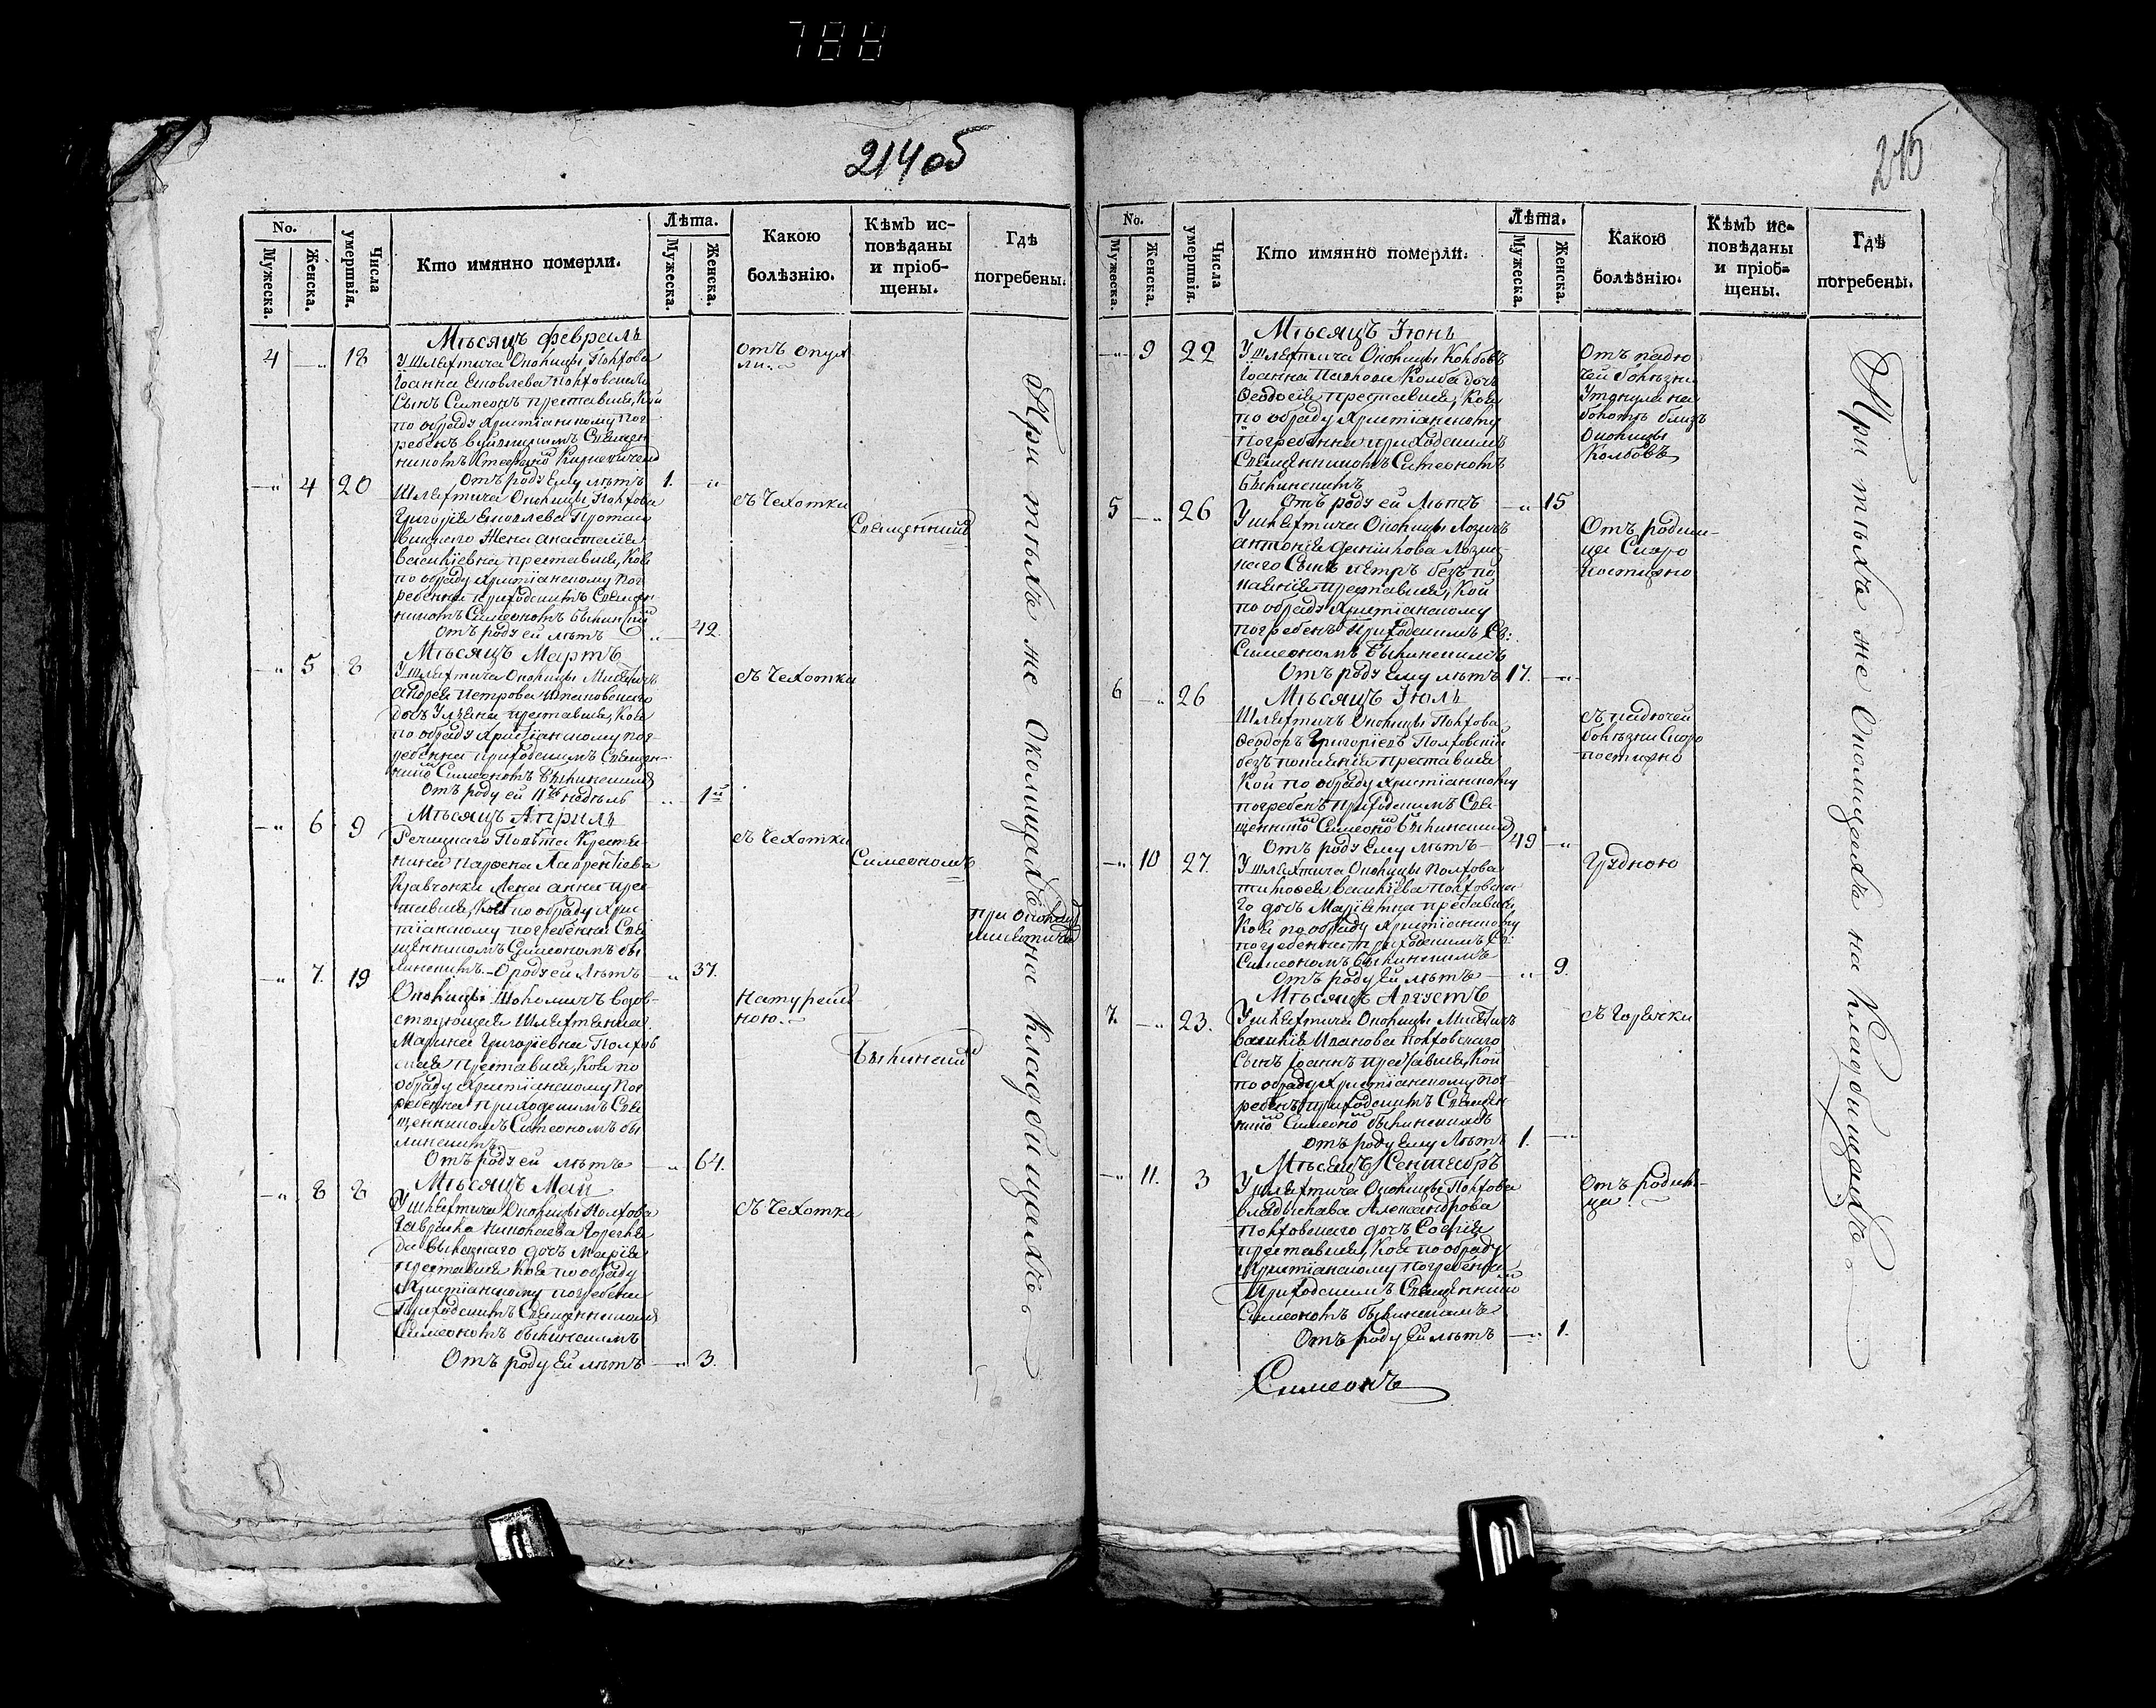 788
214 об
No.
Мужеска.
Женска.
Числа умертвія.
Кто имянно померли.
Лѣта.
Мужеска.
Женска.
Какою
болѣзнію.
Кѣмъ ис-
повѣданы
и пріоб-
щены.
Гдѣ
погребены.
Мѣсяцъ февраль
4 18 У шляхтича Околицы Полхова
Іоанна Яковлева Полховскаго
Сынъ Симеонъ преставися, Кой
по обряду Христіанскому пог
ребенъ
Стефаномъ
отъ роду ему лѣтъ 1.
Отъ опух
ли
4 20 Шляхтича Околицы Полхова
Григорія Яковлева
Жена Анастасія
Василіевна преставися, Коя
по обряду Христіанскому пог
ребенна приходскимъ Священ
никомъ Симеономъ
Отъ роду ей лѣтъ 42.
съ чехотки
Священник
Мѣсяцъ Мартъ
5 8 У шляхтича Околицы
Андрея Петрова
дочь Уліяна преставися, Коя
по обряду Христіанскому пог-
ребенна приходскимъ Священ-
Симеономъ
Отъ роду ей 11 недѣль 1
съ чехотки
Мѣсяцъ Апрѣль
6 9 Речицкаго Повѣта Крестя-
нина Парфена Лаврентіева
Кравчонка Жена анна пре
ставися, Коя по обряду Хрис
тіанскому погребенна Свя
щенникомъ Симеономъ бы
линскимъ. О роду ей Лѣтъ 37.
съ чехотки
Симеономъ
при околиц
7. 19 Околицы вдов-
ствующая Шляхтянка
Марина Григоріевна Полхов
ская преставися, Коя по
обряду Христіанскому пог
ребенна приходскимъ Свя
щенникомъ Симеономъ бы
линскимъ
Отъ роду ей лѣтъ 64.
Натураль
ною.
Былинским
Мѣсяцъ Май
8 8 У шляхтича Околицы Полхова
Гаврила Николаева
дочь Марія
преставися Коя по обряду
Христіанскому погребена
Приходскимъ Священникомъ
Симеономъ былинскимъ
Отъ роду ей лѣтъ 3.
съ чехотки
При тѣхъ же Околицахъ на кладбищахъ
215
No.
Мужеска.
Женска.
Числа умертвія.
Кто имянно померли.
Лѣта.
Мужеска.
Женска.
Какою
болѣзнію.
Кѣмъ ис-
повѣданы
и пріоб-
щены.
Гдѣ
погребены.
Мѣсяцъ Іюнь
9 22 У шляхтича Околицы Колбовъ
Іоанна Павлова Колба дочь
Феодосія преставися, Коя
по обряду Христіанскому
погребенна приходскимъ
Священникомъ Симеономъ
Былинскимъ
Отъ роду ей Лѣтъ 15
Отъ падю
чей болѣзни
Утонула на
болотѣ близъ
Околицы
Колбовъ
5 26 У шляхтича Околицы Лозичъ
антонія Данилова
Сынъ петръ безъ по
каянія преставися, Кой
по обряду Христіанскому
погребенъ Приходскимъ Св:
Симеономъ Былинскимъ
Отъ роду Ему лѣтъ 17.
Отъ родим-
ца Скоро
постижно
Мѣсяцъ Іюль
6 26 Шляхтичъ Околицы Полхова
Феодоръ Григоріевъ Полховскій
безъ покаянія преставися
Кой по обряду Христіанскому
погребенъ приходскимъ Свя-
щенникомъ Симеономъ Былинскимъ
Отъ роду Ему лѣтъ 49
съ падючей
болѣзни Скоро
постижно
10 27. У шляхтича Околицы Полхова
тимофея василіева Полховска
го дочь Маріянна преставися
Коя по обряду Христіанскому
погребенна приходскимъ Св:
Симеономъ Былинскимъ
Отъ роду Ей лѣтъ 9.
Грудною
Мѣсяцъ Августъ
7. 23. У шляхтича Околицы
василія Иванова Полховскаго
Сынъ Іоаннъ преставися, Кой
по обряду Христіанскому пог-
ребенъ приходскимъ Священ
никомъ Симеономъ былинскимъ
отъ роду Ему Лѣтъ 1.
съ Горячки
Мѣсяцъ Сентябръ
11. 3 У шляхтича Околицы Полхова
владыслава Александрова
полховскаго дочь Софія
преставися, Коя по обряду
Христіанскому погребенна
Приходскимъ Священникомъ
Симеономъ былинскимъ
Отъ роду Ей лѣтъ 1.
Отъ родим-
ца.
При тѣхъ же Околицахъ на Кладбищахъ
Симеонъ